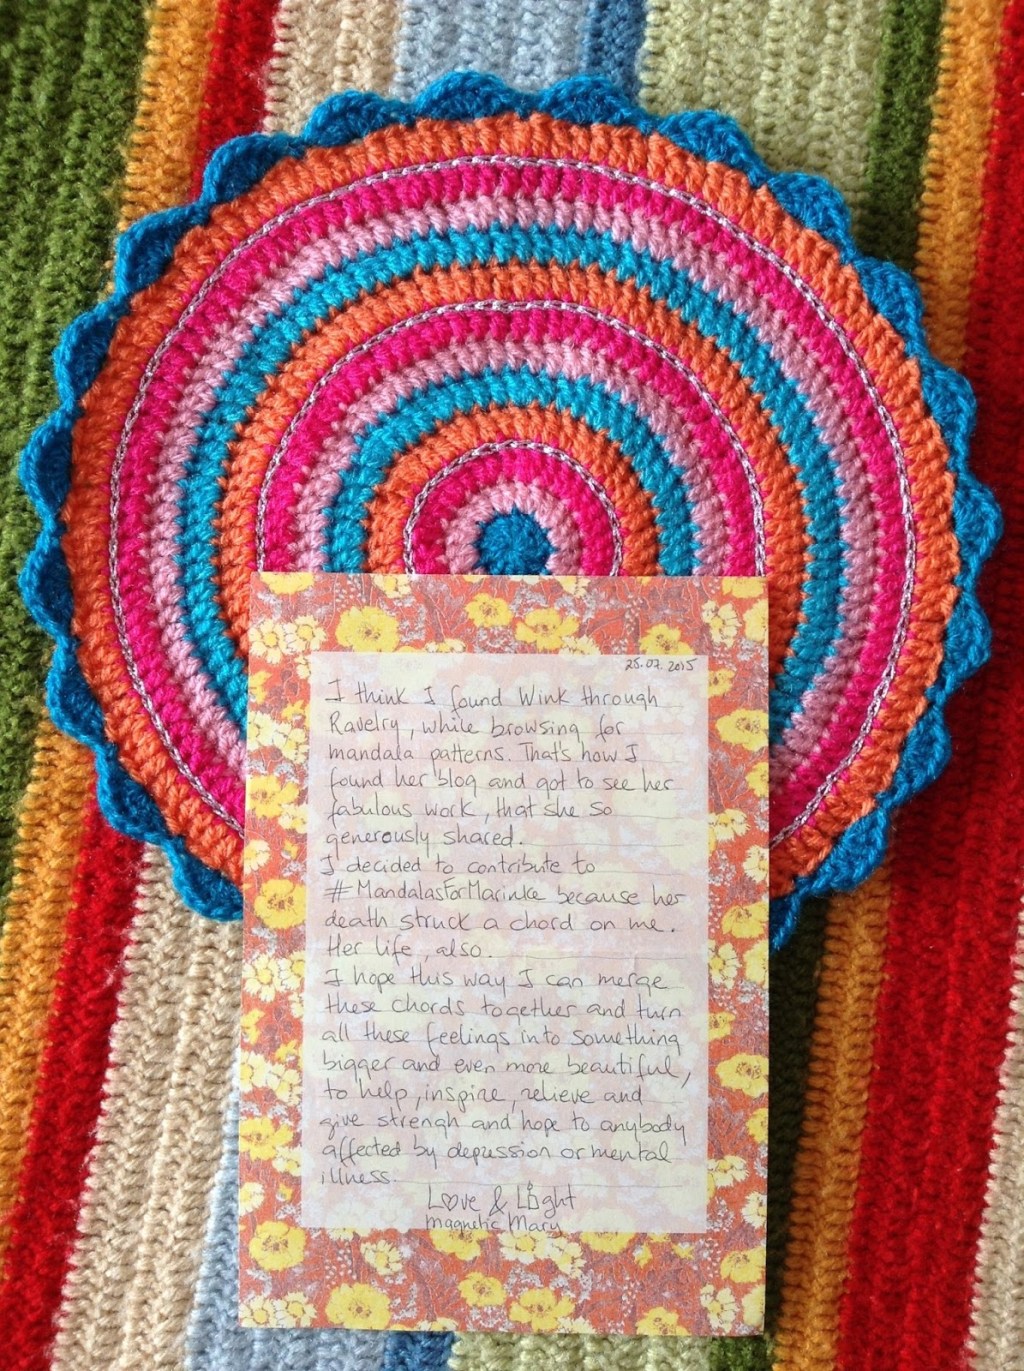 25.07.2015
I think I found Wink through
Ravelry, while browsing for
mandala patterns. That's how I
found her blog and got to see her
fabulous work, that she so
generously shared.
I decided to contribute to
#MandalasForMarinke because her
death struck a chord on me.
Her life, also.
I hope this way I can merge
these chords together and turn
all these feelings into something
bigger and even more beautiful,
to help, inspire, relieve and
give strengh and hope to anybody
affected by depression or mental
illness.
Love & Light
Magnetic Mary